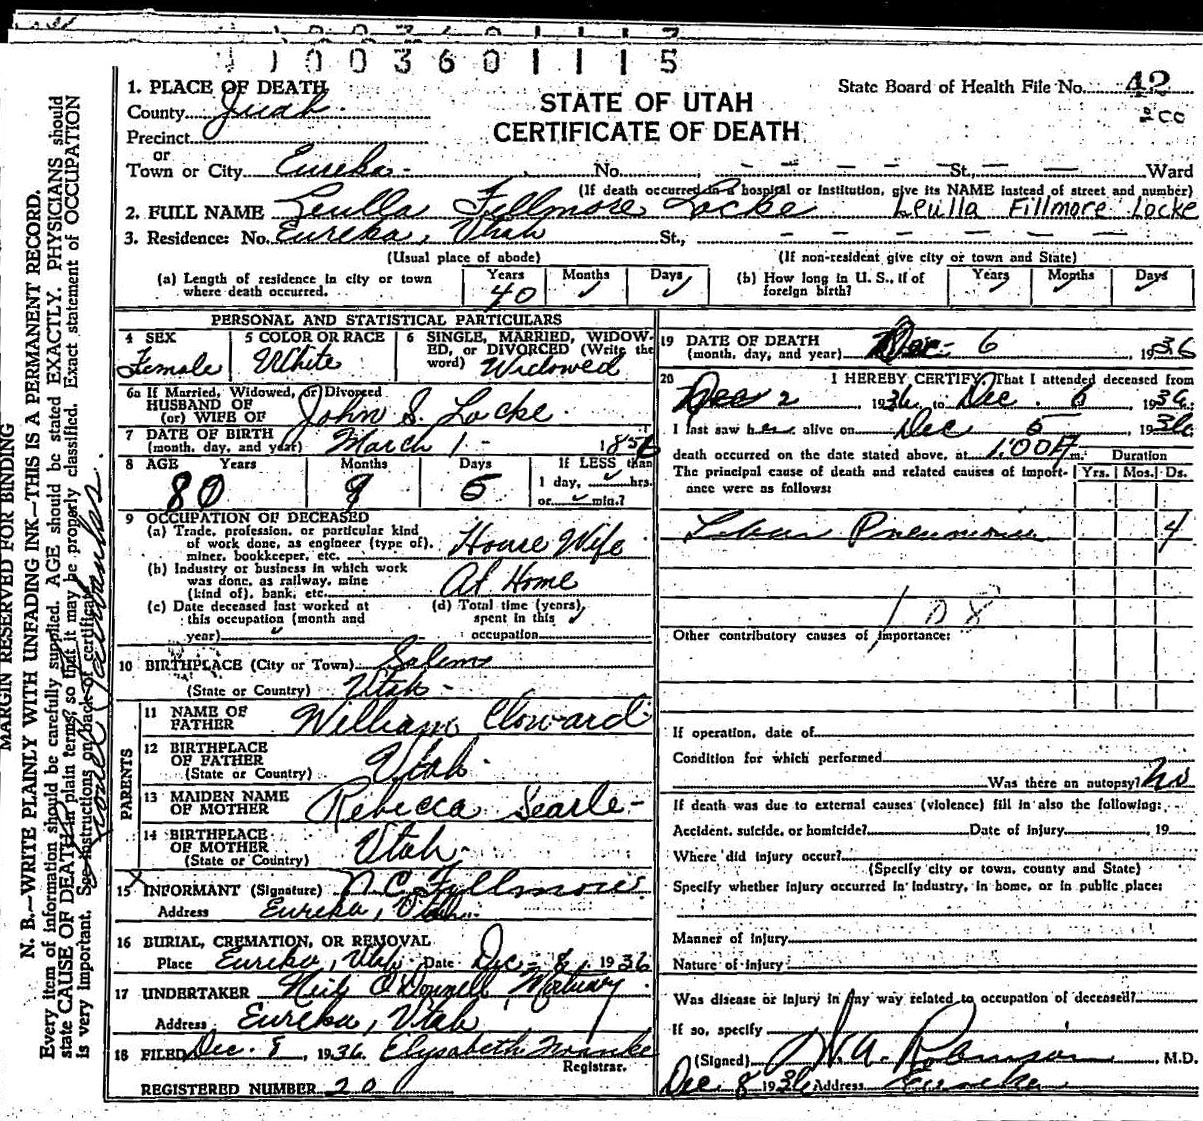 1 0 0 3 6 0 1 1 1 5
State Board of Health File No. 42
200
STATE OF UTAH
CERTIFICATE OF DEATH
1. PLACE OF DEATH
County Juab
Precinct
or
Town or City Eureka No. St., Ward
(If death occurred in a hospital or institution, give its NAME instead of street and number)
2. FULL NAME Leulla Fillmore Locke Leulla Fillmore Locke
3. Residence: No. Eureka, Utah St.,
(Usual place of abode) (If non-resident give city or town and State)
(a) Length of residence in city or town where death occurred. Years 40 Months ✓ Days ✓
(b) How long in U. S., if of foreign birth? Years ✓ Months ✓ Days ✓
PERSONAL AND STATISTICAL PARTICULARS
4 SEX Female
5 COLOR OR RACE White
6 SINGLE, MARRIED, WIDOWED, or DIVORCED (Write the word) Widowed
6a If Married, Widowed, or Divorced
HUSBAND OF
(or) WIFE OF John S. Locke
7 DATE OF BIRTH
(month, day, and year) March 1 - 1856
8 AGE Years 80 Months 9 Days 5 If LESS than
1 day, ✓ hrs.
or ✓ min.?
9 OCCUPATION OF DECEASED
(a) Trade, profession, or particular kind
of work done, as engineer (type of),
miner, bookkeeper, etc. House Wife
(b) Industry or business in which work
was done, as railway, mine
(kind of), bank, etc. At Home
(c) Date deceased last worked at
this occupation (month and
year) ✓
(d) Total time (years)
spent in this
occupation ✓
10 BIRTHPLACE (City or Town) Salem
(State or Country) Utah -
PARENTS
11 NAME OF
FATHER William Cloward
12 BIRTHPLACE
OF FATHER
(State or Country) Utah
13 MAIDEN NAME
OF MOTHER Rebecca Searle -
14 BIRTHPLACE
OF MOTHER
(State or Country) Utah
15 INFORMANT (Signature) N. C. Fillmore
Address Eureka, Utah
16 BURIAL, CREMATION, OR REMOVAL
Place Eureka, Utah Date Dec - 8, 1936
17 UNDERTAKER Neil O'Donnell Mortuary
Address Eureka, Utah
18 FILED Dec. 8, 1936. Elysabeth
Registrar.
REGISTERED NUMBER 20
19 DATE OF DEATH
(month, day, and year) Dec - 6, 1936
20 I HEREBY CERTIFY, That I attended deceased from
Dec 2 1936, to Dec. 6 1936;
I last saw her alive on Dec 5, 1936
death occurred on the date stated above, at 1:00 A m. Duration
The principal cause of death and related causes of importance were as follows: Yrs. Mos. Ds.
Lobar Pneumonia 4
108
Other contributory causes of importance:
If operation, date of
Condition for which performed
Was there an autopsy? No
If death was due to external causes (violence) fill in also the following:
Accident, suicide, or homicide? Date of injury 19
Where did injury occur?
(Specify city or town, county and State)
Specify whether injury occurred in industry, in home, or in public place:
Manner of injury
Nature of injury
Was disease or injury in any way related to occupation of deceased?
If so, specify
(Signed) Robinson M.D.
Dec 8 1936 Address Eureka
MARGIN RESERVED FOR BINDING
N. B.—WRITE PLAINLY WITH UNFADING INK—THIS IS A PERMANENT RECORD.
Every item of information should be carefully supplied. AGE should be stated EXACTLY. PHYSICIANS should
state CAUSE OF DEATH in plain terms, so that it may be properly classified. Exact statement of OCCUPATION
is very important. See instructions on back of certificate.